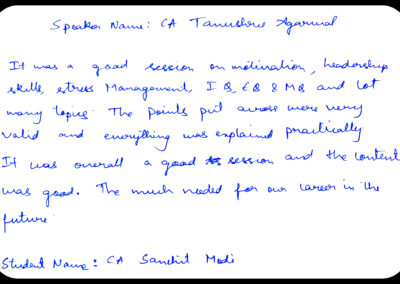 Speaker Name: CA Tanushree Agarwal
It was a good session on motivation, leadership
skills, stress Management, IQ, EQ & MQ and lot
many topics. The points put across were very
valid and everything was explained practically
It was overall a good session and the content
was good. The much needed for our career in the
future.
Student Name: CA Sanchit Modi